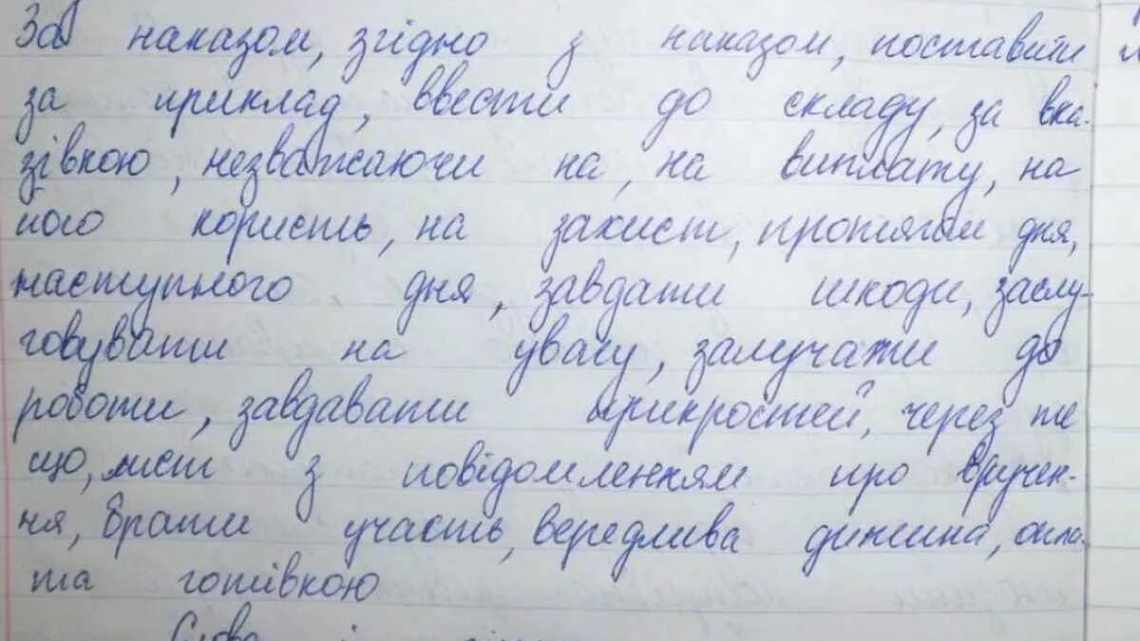 За наказом, згідно з наказом, поставити
за приклад, ввести до складу, за вка-
зівкою, незважаючи на, на виплату, на
його користь, на захист, протягом дня,
наступного дня, завдати шкоди, заслу-
говувати на увагу, залучати до
роботи, завдавати прикростей, через те
що, лист з повідомленням про вручен-
ня, брати участь, вередлива дитина, опла-
та готівкою
Слова і